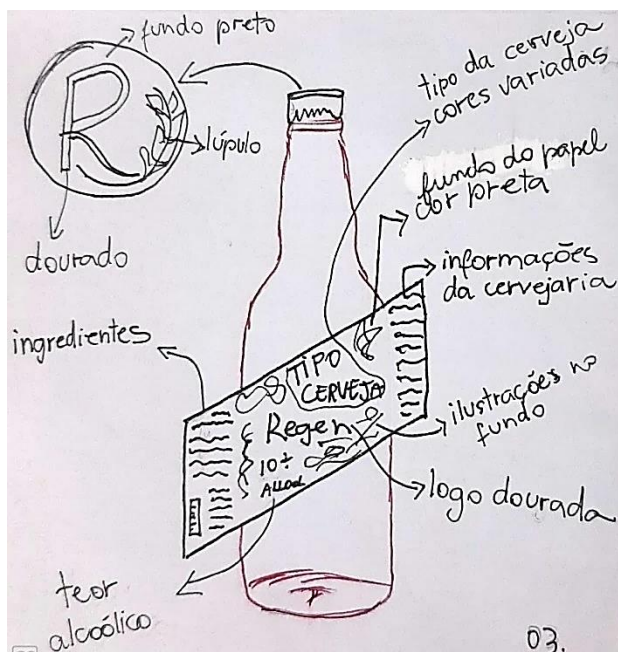 fundo preto
R
lúpulo
dourado
tipo da cerveja
cores variadas
fundo do papel
cor preta
informações
da cervejaria
ingredientes
TIPO
CERVEJA
Regen
ilustrações no
fundo
logo dourada
teor
alcoólico
03.